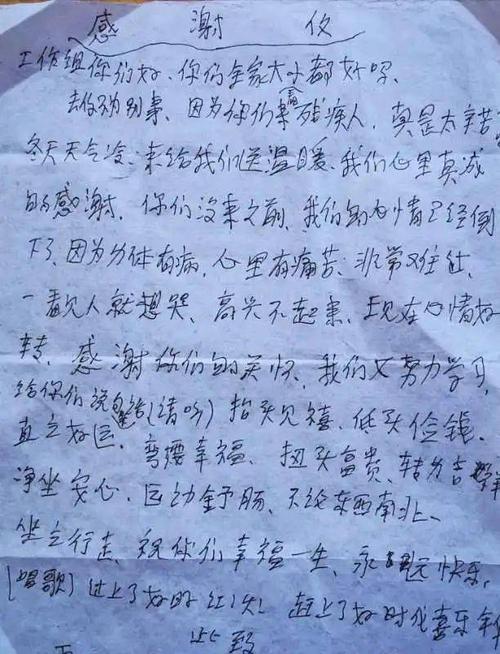 感 谢 仪
工作组你们好、你们全家大小都好吗、
去你为别事、因为你们来看残疾人,真是太辛苦
冬天天气冷、来给我们送温暖、我们心里真诚
的感谢、你们没来之前、我们的心情已经倒
下了因为身体有病,心里有痛苦、非常难过,
一看见人就想哭、高兴不起来、现在心情好
转、感谢你们的关怀、我们又努力学习,
给你们说(请听)抬头见禧、低头俭钱、
直立好运、弯腰幸福、扭头富贵、转身吉祥
净坐安心、运动舒肠、不论东西南北、
坐立行走、祝你们幸福一生、永远快乐,
(唱歌)过上了好时 赶上了好时代喜乐年
此致